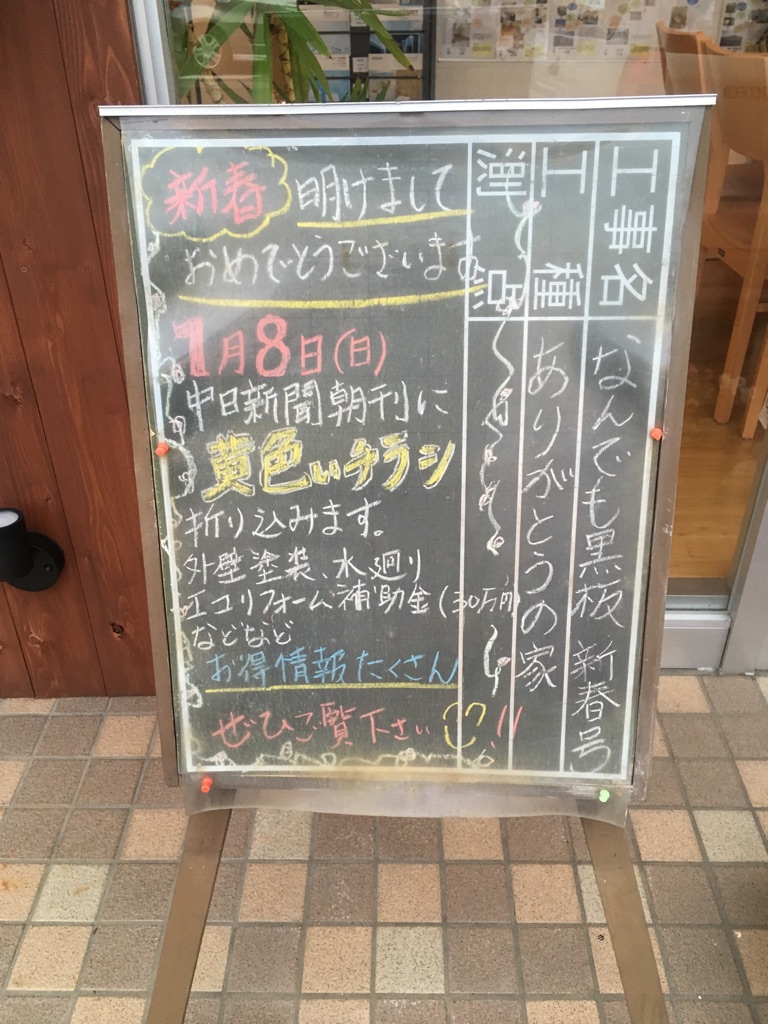 工事名
なんでも黒板 新春号
工種
ありがとうの家
測点
新春 明けまして
おめでとうございます
1月8日(日)
中日新聞朝刊に
黄色いチラシ
折り込みます。
外壁塗装、水廻り
エコリフォーム補助金(30万円)
などなど
お得情報たくさん
ぜひご覧下さい!!